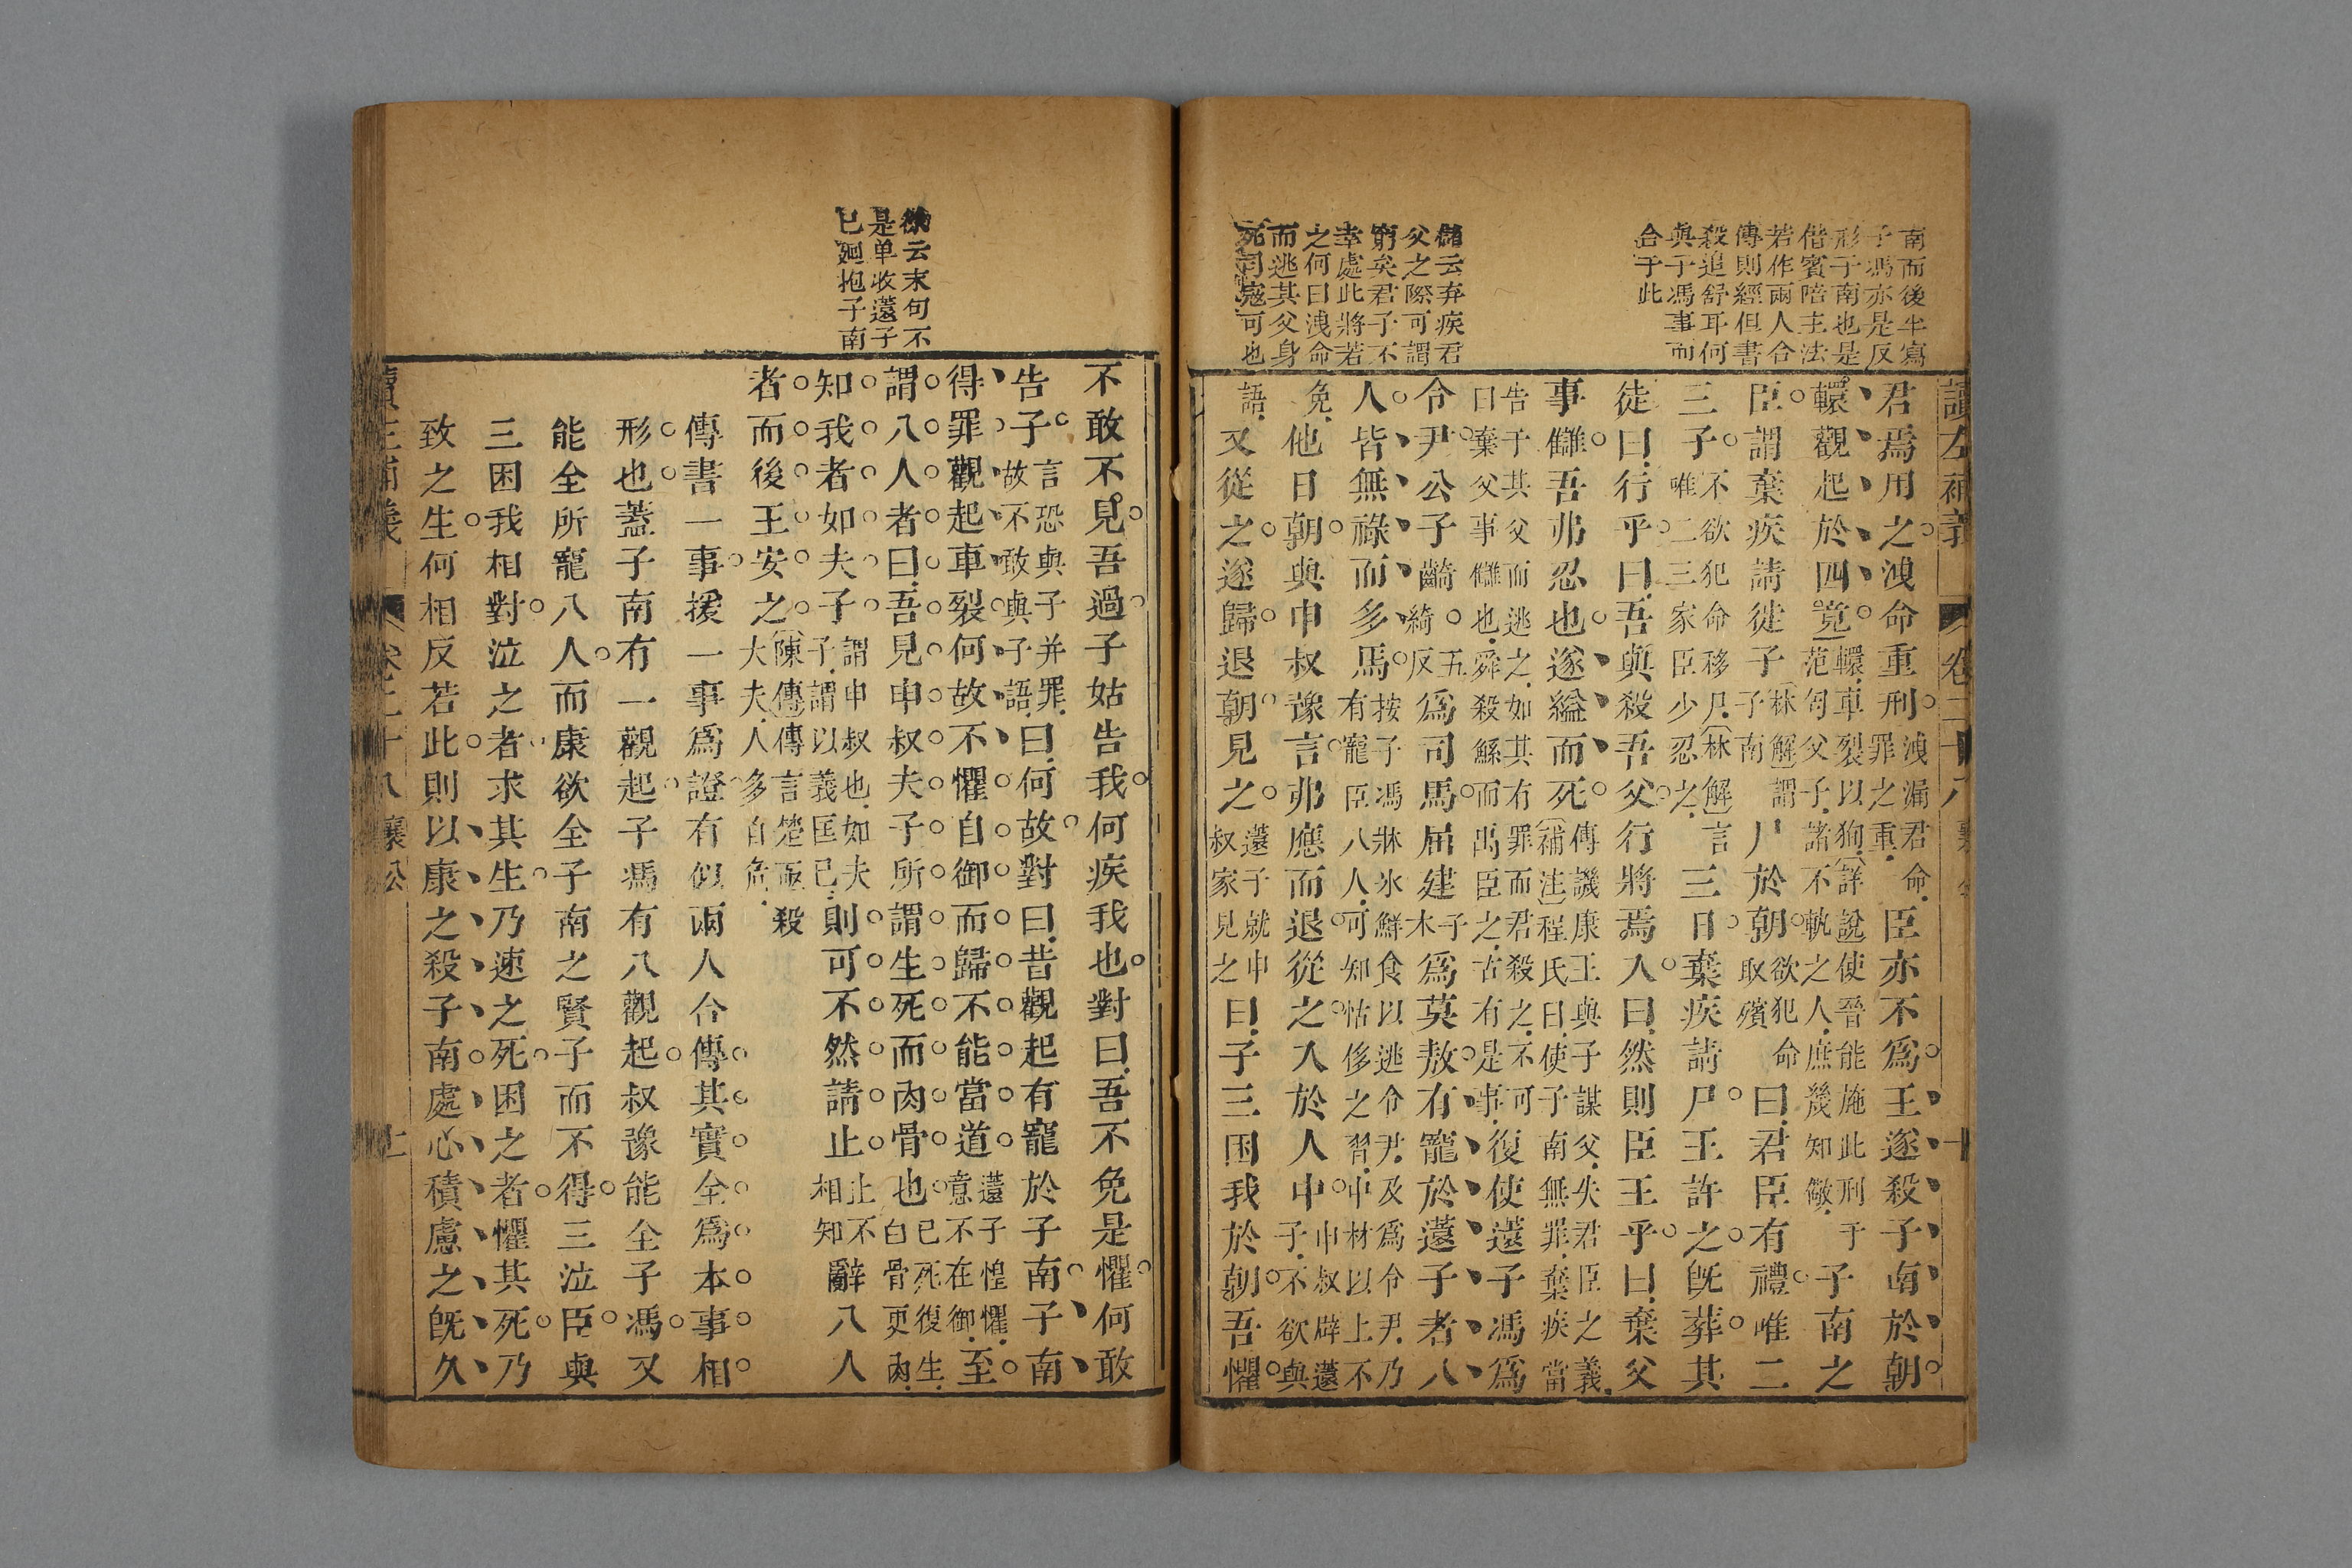 南而後半寫
子馮亦是反
形子南也是
偕賓陪主法
若作兩人合
傳則經但書
殺追舒耳何
與子馮事而
合于此
儲云弃疾君
父之際可謂
窮矣君子不
幸處此將若
之何曰洩命
而逃其父身
死司寇可也
讀左補義 卷二十八 襄公 十
君焉用之洩命重刑洩漏君命罪之重臣亦不爲王遂殺子南於朝
轘觀起於四竟轘車裂以狥詳說使晉能施此刑于范匄父子諸不軌之人庶幾知儆子南之
臣謂棄疾請徙子林解謂子南尸於朝欲犯命取殯曰君臣有禮唯二
三子不欲犯命移尸林解言唯二三家臣少忍之三日棄疾請尸王許之旣葬其
徒曰行乎曰吾與殺吾父行將焉入曰然則臣王乎曰棄父
事讎吾弗忍也遂縊而死傳譏康王與子謀父失君臣之義補注程氏曰使子南無罪棄疾當
告于其父而逃之如其有罪而君殺之不可曰棄父事讎也舜殺鯀而禹臣之古有是事復使薳子馮爲
令尹公子齮五綺反爲司馬屈建子木爲莫敖有寵於薳子者八
人皆無祿而多馬按子馮牀冰鮮食以逃令尹及爲令尹乃有寵臣八人可知怙侈之習中材以上不
免他日朝與申叔豫言弗應而退從之入於人中申叔辟薳子不欲與
語又從之遂歸退朝見之薳子就申叔家見之曰子三困我於朝吾懼
徐云末句不
是单收薳子
已廻抱子南
不敢不見吾過子姑告我何疾我也對曰吾不免是懼何敢
告子言恐與子并罪故不敢與子語曰何故對曰昔觀起有寵於子南子南
得罪觀起車裂何故不懼自御而歸不能當道薳子惶懼意不在御至
謂八人者曰吾見申叔夫子所謂生死而肉骨也已死復生白骨更肉
知我者如夫子謂申叔也如夫子謂以義匡已則可不然請止止不相知辭八人
者而後王安之陳傳傳言楚亟殺大夫人多自危
傳書一事援一事爲證有似兩人合傳其實全爲本事相
形也蓋子南有一觀起子馮有八觀起叔豫能全子馮又
能全所寵八人而康欲全子南之賢子而不得三泣臣與
三困我相對泣之者求其生乃速之死困之者懼其死乃
致之生何相反若此則以康之殺子南處心積慮之旣久
讀左補義 卷二十八 襄公